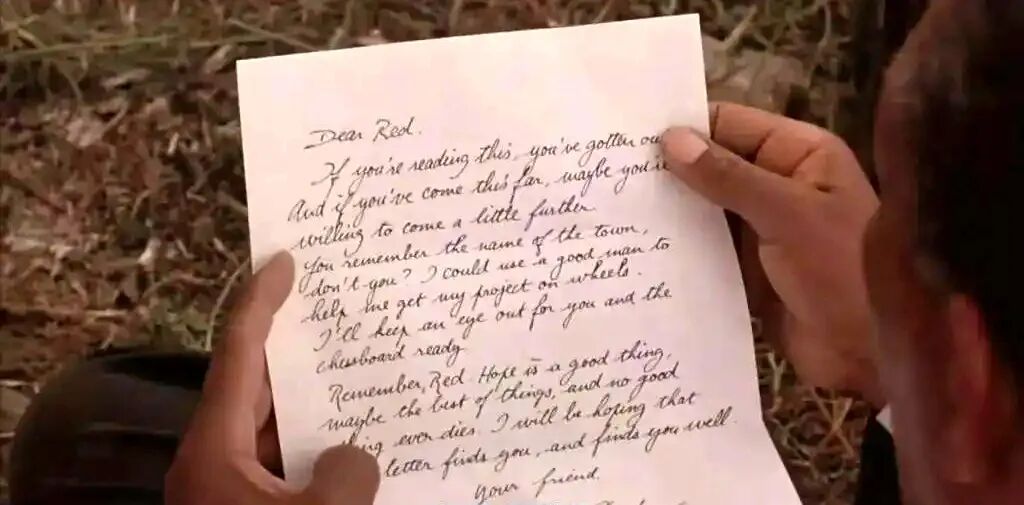 Dear Red.
If you're reading this, you've gotten
And if you've come this far, maybe
willing to come a little further.
You remember the name of the town,
don't you? I could use a good man to
help me get my project on wheels.
I'll keep an eye out for you and the
chessboard ready.
Remember, Red. Hope is a good thing,
maybe the best of things, and no good
ever dies. I will be hoping that
letter finds you, and finds you well.
Your friend.